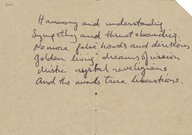 Harmony and understanding
Sympathy and trust abounding
No more false hoods and derisions
Golden living dreams of vision
Mistic crystal revelations
And the minds true liberations